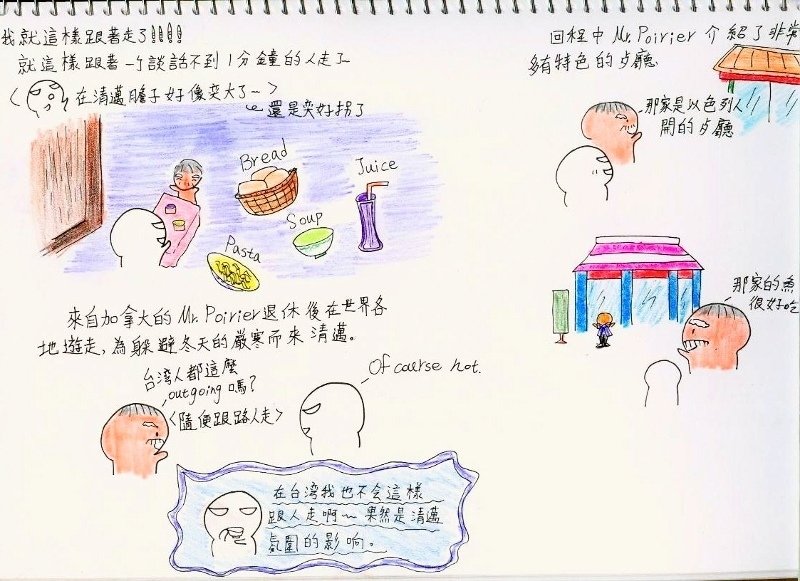 我就這樣跟著走了!!!!
就這樣跟著一個談話不到1分鐘的人走了~
<在清邁膽子好像變大了~>
還是變好拐了
Bread
Juice
Soup
Pasta
來自加拿大的 Mr. Poirier 退休後在世界各
地遊走,為躲避冬天的嚴寒而來清邁。
台湾人都這麼
outgoing 嗎?
<隨便跟路人走>
Of course not.
在台湾我也不会這樣
跟人走啊~果然是清邁
氛圍的影响。
回程中 Mr. Poirier 介紹了非常
多有特色的歺廳
那家是以色列人
開的歺廳
那家的魚
很好吃